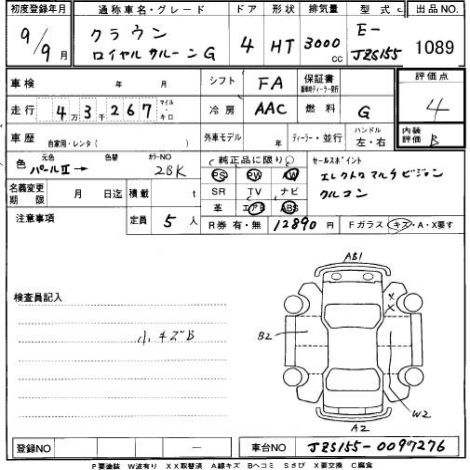 初度登録年月 通称車名・グレード ドア 形状 排気量 型式 出品NO.
9/9月 クラウン ロイヤルサルーンG 4 HT 3000cc E-JZS155 1089
車検 年 月 シフト FA 保証書 評価点
走行 4万3千267 マイル・キロ 冷房 AAC 燃料 G 4
車歴 自家用・レンタ( ) 外車モデル 年 ディーラー・並行 ハンドル 左・右 内装評価 B
色 元色 パールII→ 色替 カラーNO 28K (純正品に限り○) セールスポイント
PS PW AW エレクトロマルチビジョン
名義変更期限 月 日迄 積載 t SR TV ナビ クルコン
定員 5人 革 エアB ABS
注意事項 R券 有・無 12890円 Fガラス キズ・A・X要す
AB1
検査員記入
X
X
小キズB B2
W2
A2
登録NO 車台NO. JZS155-0097276
P要塗装 W波有り XX取替済 A線キズ Bヘコミ Sさび X要交換 C腐食